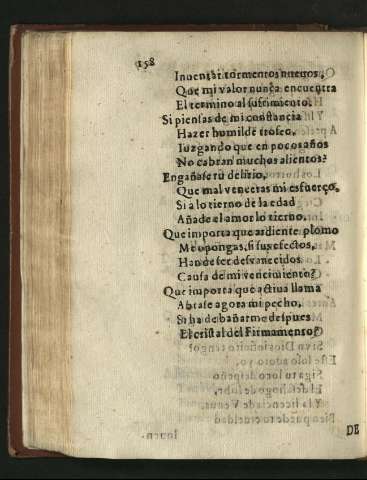 158
Inuentar tormentos nueuos,
Que mi valor nunca encuentra
El termino al sufrimiento.
Si piensas de mi constancia
Hazer humilde trofeo,
Iuzgando que en pocos años
No cabran muchos alientos?
Engañase tu delirio,
Que mal venceras mi esfuerço,
Si a lo tierno de la edad
Añade el amor lo tierno.
Que importa que ardiente plomo
Me opongas, si sus efectos,
Han de ser desvanecidos
Causa de mi vencimiento?
Que importa que actiua llama
Abrase agora mi pecho,
Si ha de bañarme despues
El cristal del Firmamento?
DE